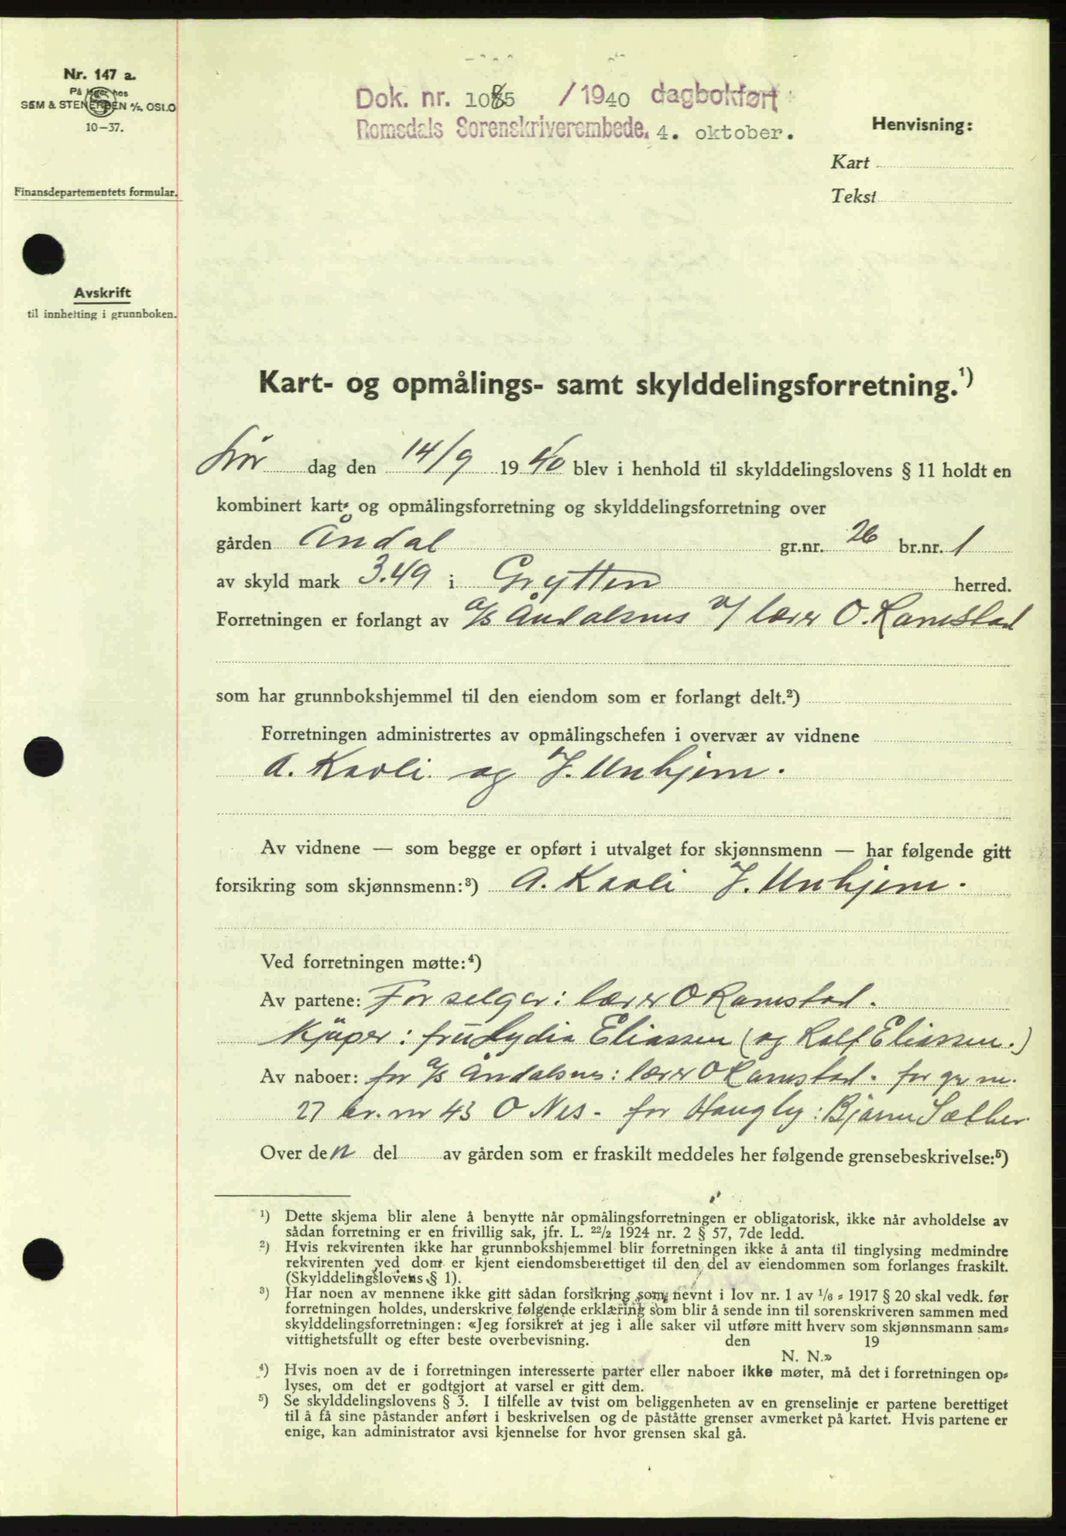 Nr. 147 a.
På lager hos
SEM & STENERSEN A/S, OSLO
10-37.
Finansdepartementets formular.
Avskrift
til innhefting i grunnboken.
Dok. nr. 1085 /1940 dagbokført
Romsdals Sorenskriverembede, 4. oktober.
Henvisning:
Kart
Tekst
Kart- og opmålings- samt skylddelingsforretning.¹)
Lør dag den 14/9 1940 blev i henhold til skylddelingslovens § 11 holdt en
kombinert kart- og opmålingsforretning og skylddelingsforretning over
gården Åndal gr.nr. 26 br.nr. 1
av skyld mark 3.49 i Grytten herred.
Forretningen er forlangt av A/S Åndalsnes v/ lærer O. Ramstad
som har grunnbokshjemmel til den eiendom som er forlangt delt.²)
Forretningen administrertes av opmålingschefen i overvær av vidnene
A. Kavli og J. Unhjem.
Av vidnene — som begge er opført i utvalget for skjønnsmenn — har følgende gitt
forsikring som skjønnsmenn:³) A. Kavli J. Unhjem.
Ved forretningen møtte:⁴)
Av partene: For selger: lærer O Ramstad.
Kjøper: fru Lydia Eliassen (og Rolf Eliassen.)
Av naboer: for A/S Åndalsnes: lærer O Ramstad. for gr. nr.
27 br. nr 43 O Nes - for Haugly: Bjarne Sæther
Over den del av gården som er fraskilt meddeles her følgende grensebeskrivelse:⁵)
¹) Dette skjema blir alene å benytte når opmålingsforretningen er obligatorisk, ikke når avholdelse av
sådan forretning er en frivillig sak, jfr. L. 22/2 1924 nr. 2 § 57, 7de ledd.
²) Hvis rekvirenten ikke har grunnbokshjemmel blir forretningen ikke å anta til tinglysing medmindre
rekvirenten ved dom er kjent eiendomsberettiget til den del av eiendommen som forlanges fraskilt.
(Skylddelingslovens § 1).
³) Har noen av mennene ikke gitt sådan forsikring som nevnt i lov nr. 1 av 1/6 - 1917 § 20 skal vedk. før
forretningen holdes, underskrive følgende erklæring som blir å sende inn til sorenskriveren sammen med
skylddelingsforretningen: «Jeg forsikrer at jeg i alle saker vil utføre mitt hverv som skjønnsmann sam-
vittighetsfullt og efter beste overbevisning. den 19
N. N.»
⁴) Hvis noen av de i forretningen interesserte parter eller naboer ikke møter, må det i forretningen op-
lyses, om det er godtgjort at varsel er gitt dem.
⁵) Se skylddelingslovens § 3. I tilfelle av tvist om beliggenheten av en grenselinje er partene berettiget
til å få sine påstander anført i beskrivelsen og de påståtte grenser avmerket på kartet. Hvis partene er
enige, kan administrator avsi kjennelse for hvor grensen skal gå.